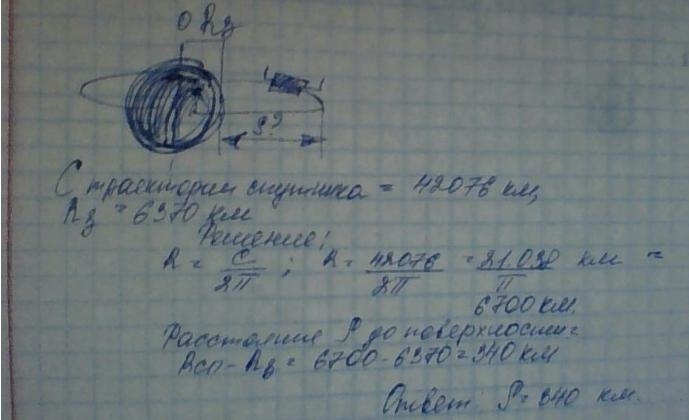 0 Rз
ρ?
С траектории спутника = 42076 км,
Rз = 6370 км
Решение:
R = C/2П ; R = 42076/2П = 21.038/П км =
6700 км.
Расстояние ρ до поверхности =
Rсп - Rз = 6700 - 6370 = 340 км
Ответ: ρ = 340 км.